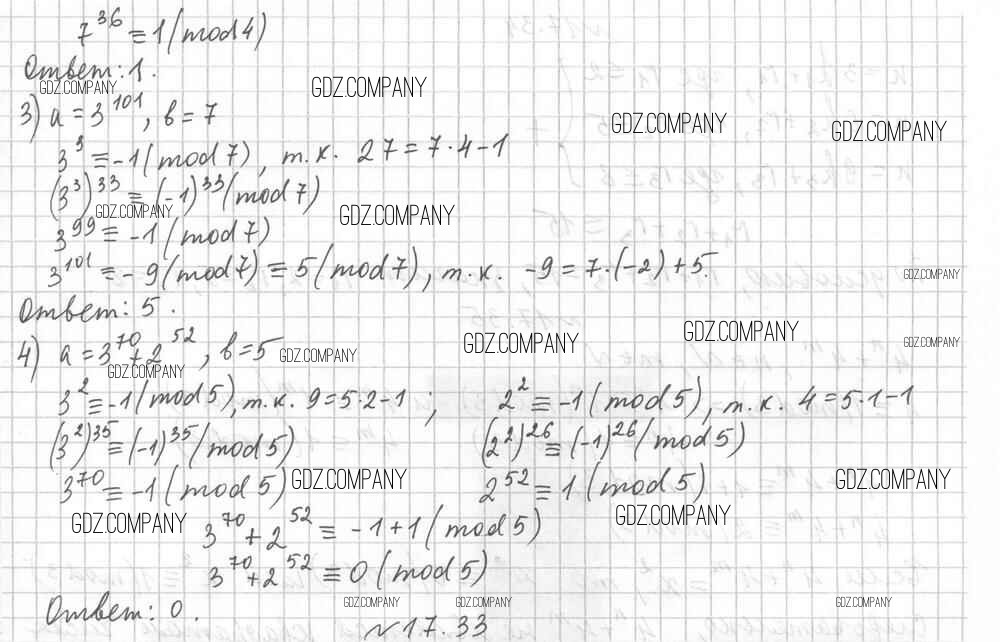 7^36 ≡ 1 (mod 4)
Ответ: 1.
GDZ.COMPANY GDZ.COMPANY
3) a = 3^101, b = 7
GDZ.COMPANY GDZ.COMPANY
3^3 ≡ -1 (mod 7), т.к. 27 = 7·4-1
(3^3)^33 ≡ (-1)^33 (mod 7)
GDZ.COMPANY GDZ.COMPANY
3^99 ≡ -1 (mod 7)
3^101 ≡ -9 (mod 7) ≡ 5 (mod 7), т.к. -9 = 7·(-2)+5.
GDZ.COMPANY
Ответ: 5.
GDZ.COMPANY GDZ.COMPANY GDZ.COMPANY
4) a = 3^70 + 2^52, b = 5
GDZ.COMPANY GDZ.COMPANY
3^2 ≡ -1 (mod 5), т.к. 9 = 5·2-1 ; 2^2 ≡ -1 (mod 5), т.к. 4 = 5·1-1
(3^2)^35 ≡ (-1)^35 (mod 5) (2^2)^26 ≡ (-1)^26 (mod 5)
3^70 ≡ -1 (mod 5) 2^52 ≡ 1 (mod 5)
GDZ.COMPANY GDZ.COMPANY
GDZ.COMPANY GDZ.COMPANY
3^70 + 2^52 ≡ -1+1 (mod 5)
3^70 + 2^52 ≡ 0 (mod 5)
Ответ: 0.
GDZ.COMPANY GDZ.COMPANY GDZ.COMPANY
№17.33